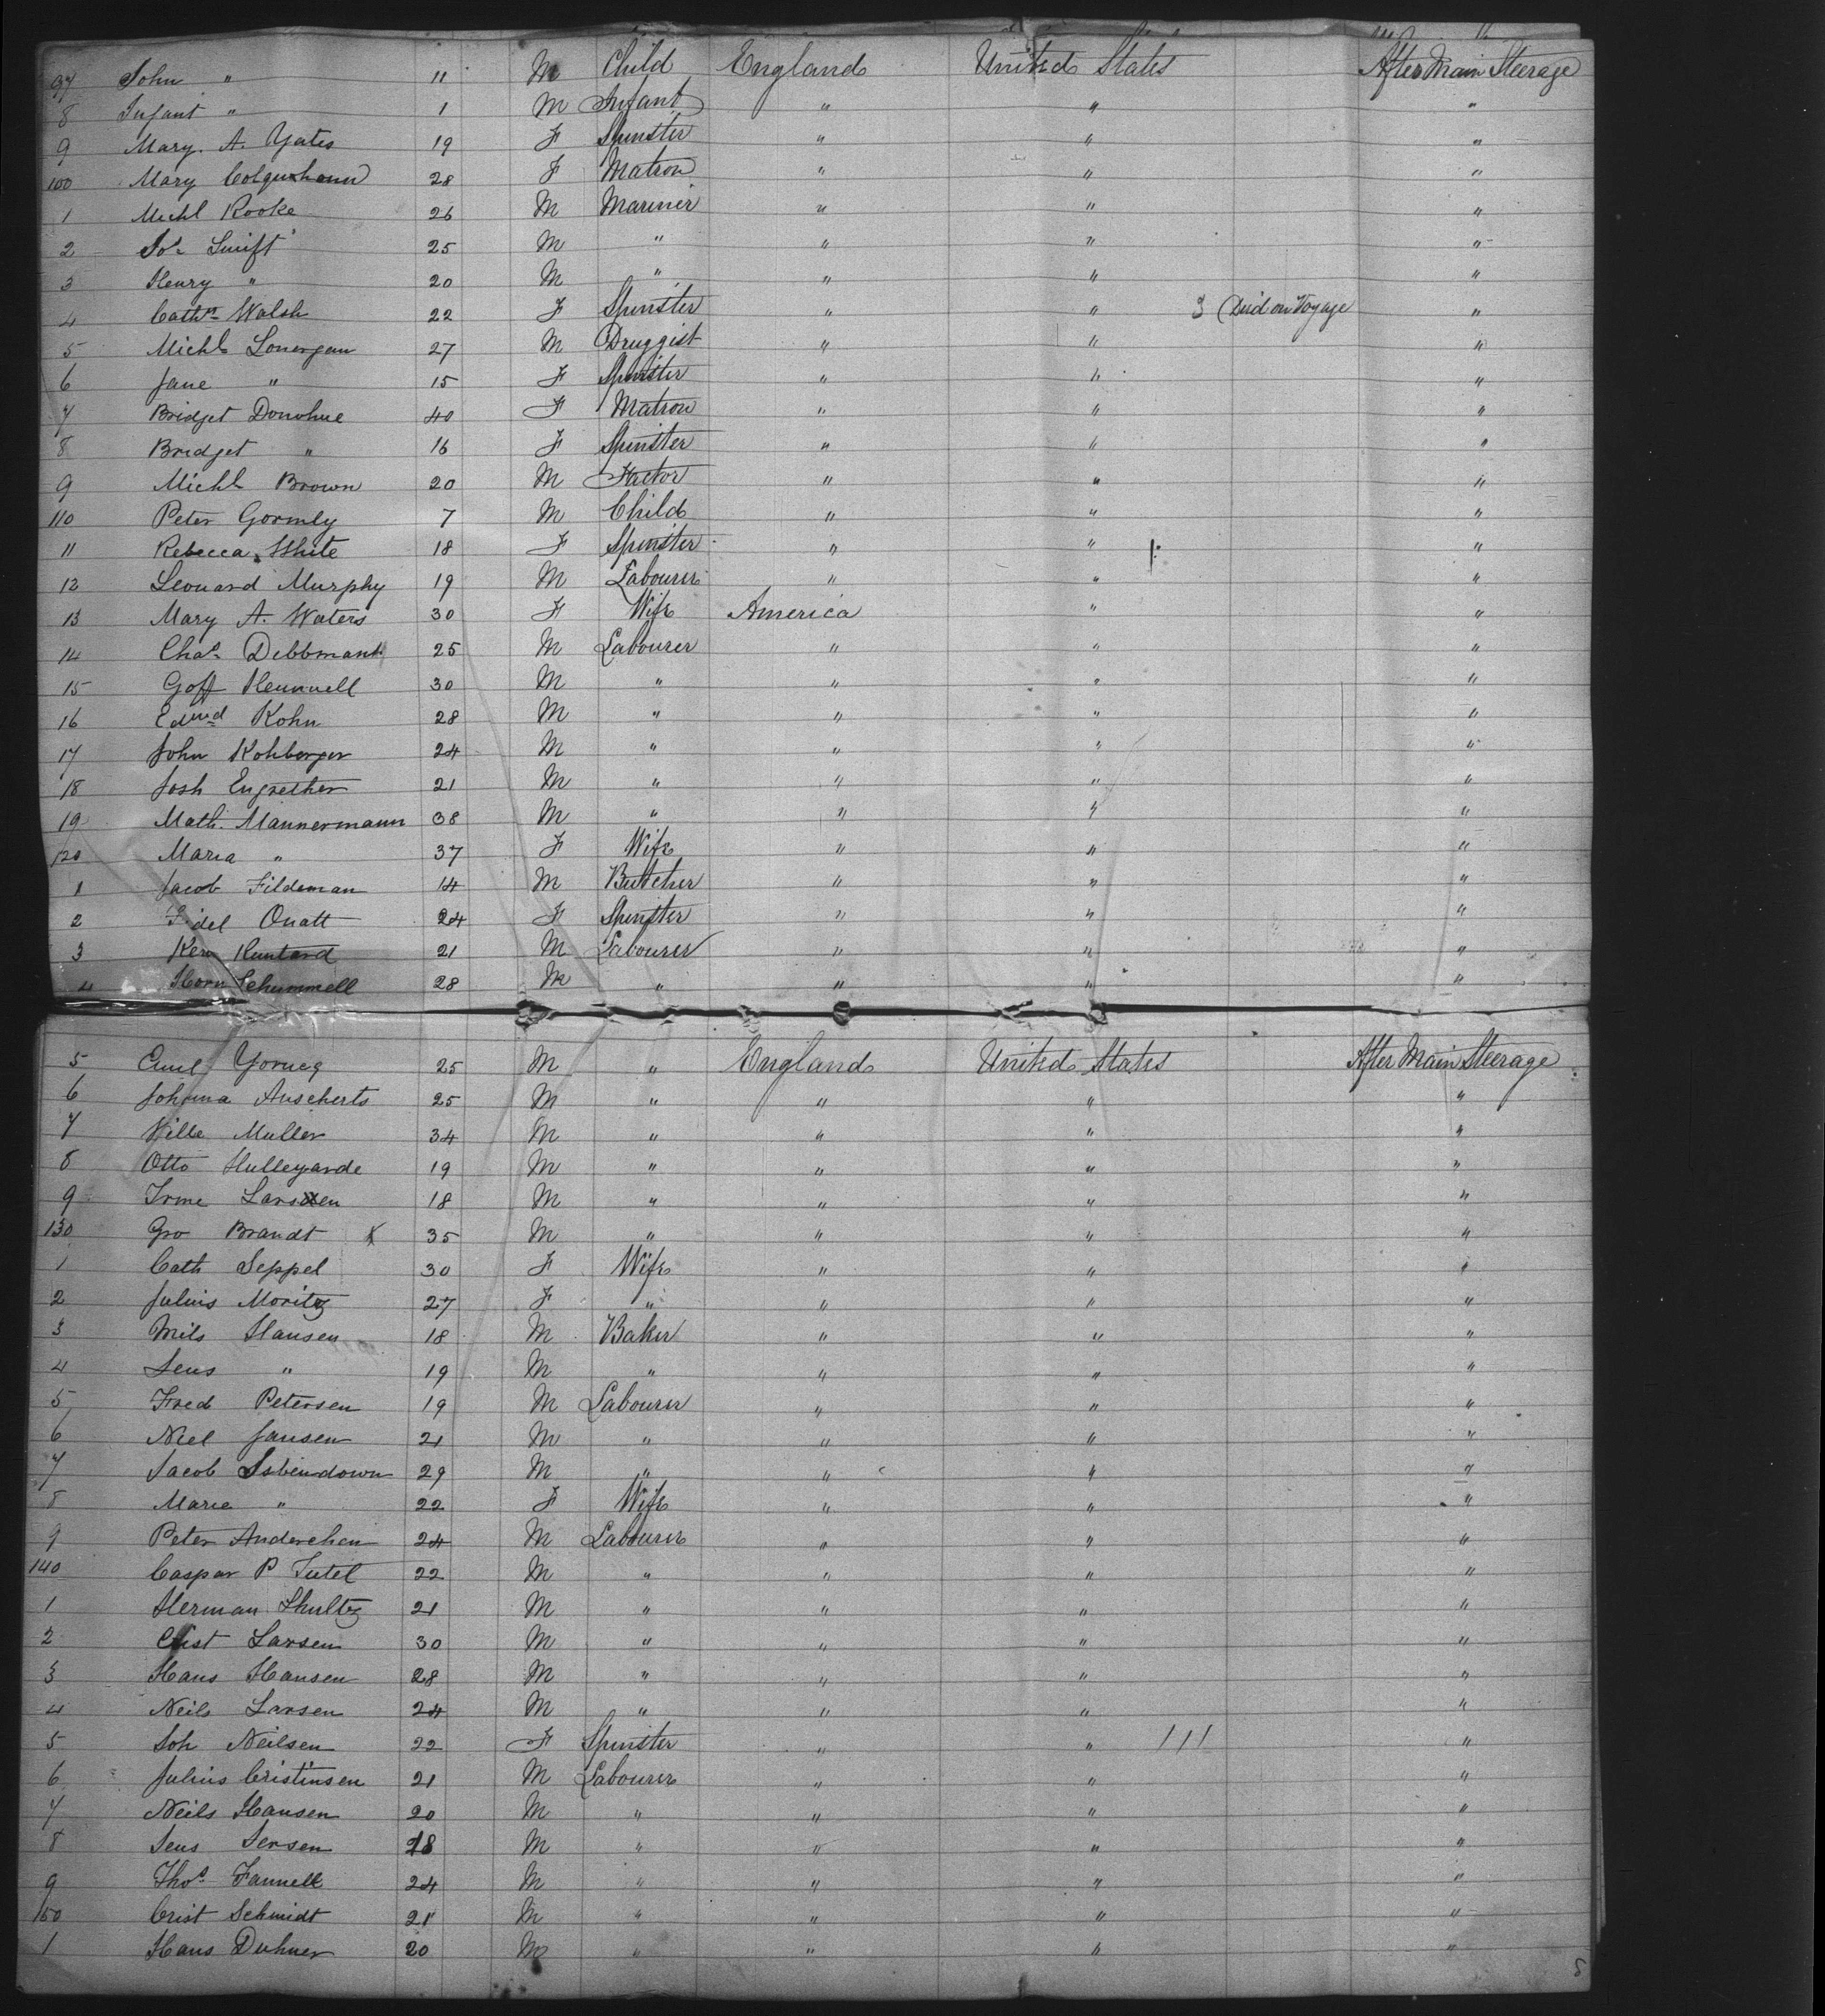 97 John " 11 M Child England United States After Main Steerage
8 Infant " 1 M Infant " " "
9 Mary A. Yates 19 F Spinster " " "
100 Mary Colquhoun 28 F Matron " " "
1 Michl Rooke 26 M Mariner " " "
2 Jos Swift 25 M " " " "
3 Henry " 20 M " " " "
4 Cathn Walsh 22 F Spinster " " Died on Voyage "
5 Michl Lonergan 27 M Druggist " " "
6 Jane " 15 F Spinster " " "
7 Bridget Donohue 40 F Matron " " "
8 Bridget " 16 F Spinster " " "
9 Michl Brown 20 M Factor " " "
110 Peter Gormly 7 M Child " " "
11 Rebecca White 18 F Spinster " " "
12 Leonard Murphy 19 M Labourer " " "
13 Mary A. Waters 30 F Wife America " "
14 Chas Debbmank 25 M Labourer " " "
15 Goff Hennell 30 M " " " "
16 Edwd Kohn 28 M " " " "
17 John Kohberger 24 M " " " "
18 Josh Engrether 21 M " " " "
19 Math. Mannermann 38 M " " " "
120 Maria " 37 F Wife " " "
1 Jacob Fildeman 14 M Butcher " " "
2 Fidel Onatt 24 F Spinster " " "
3 Kern Kuntard 21 M Labourer " " "
4 Horn Schummell 28 M " " " "
5 Emel 25 M " England United States After Main Steerage
6 Johnna Auscherts 25 M " " " "
7 Wille Muller 34 M " " " "
8 Otto Hulleyarde 19 M " " " "
9 Irme Larsen 18 M " " " "
130 Gro Brandt X 35 M " " " "
1 Cath Seppel 30 F Wife " " "
2 Julius Moritz 27 F " " " "
3 Mils Hansen 18 M Baker " " "
4 Jens " 19 M " " " "
5 Fred Petersen 19 M Labourer " " "
6 Neel Jansen 21 M " " " "
7 Jacob Isbendown 29 M " " " "
8 Marie " 22 F Wife " " "
9 Peter Anderehen 24 M Labourer " " "
140 Caspar P Jutel 22 M " " " "
1 Herman Shultz 21 M " " " "
2 Crist Larsen 30 M " " " "
3 Hans Hansen 28 M " " " "
4 Neils Larsen 24 M " " " "
5 Joh Neilsen 22 F Spinster " " 111 "
6 Julius Cristinsen 21 M Labourer " " "
7 Neils Hansen 20 M " " " "
8 Jens Jersen 28 M " " " "
9 Thos Fannell 24 M " " " "
150 Crist Schmidt 21 M " " " "
1 Hans Duhner 20 M " " " "